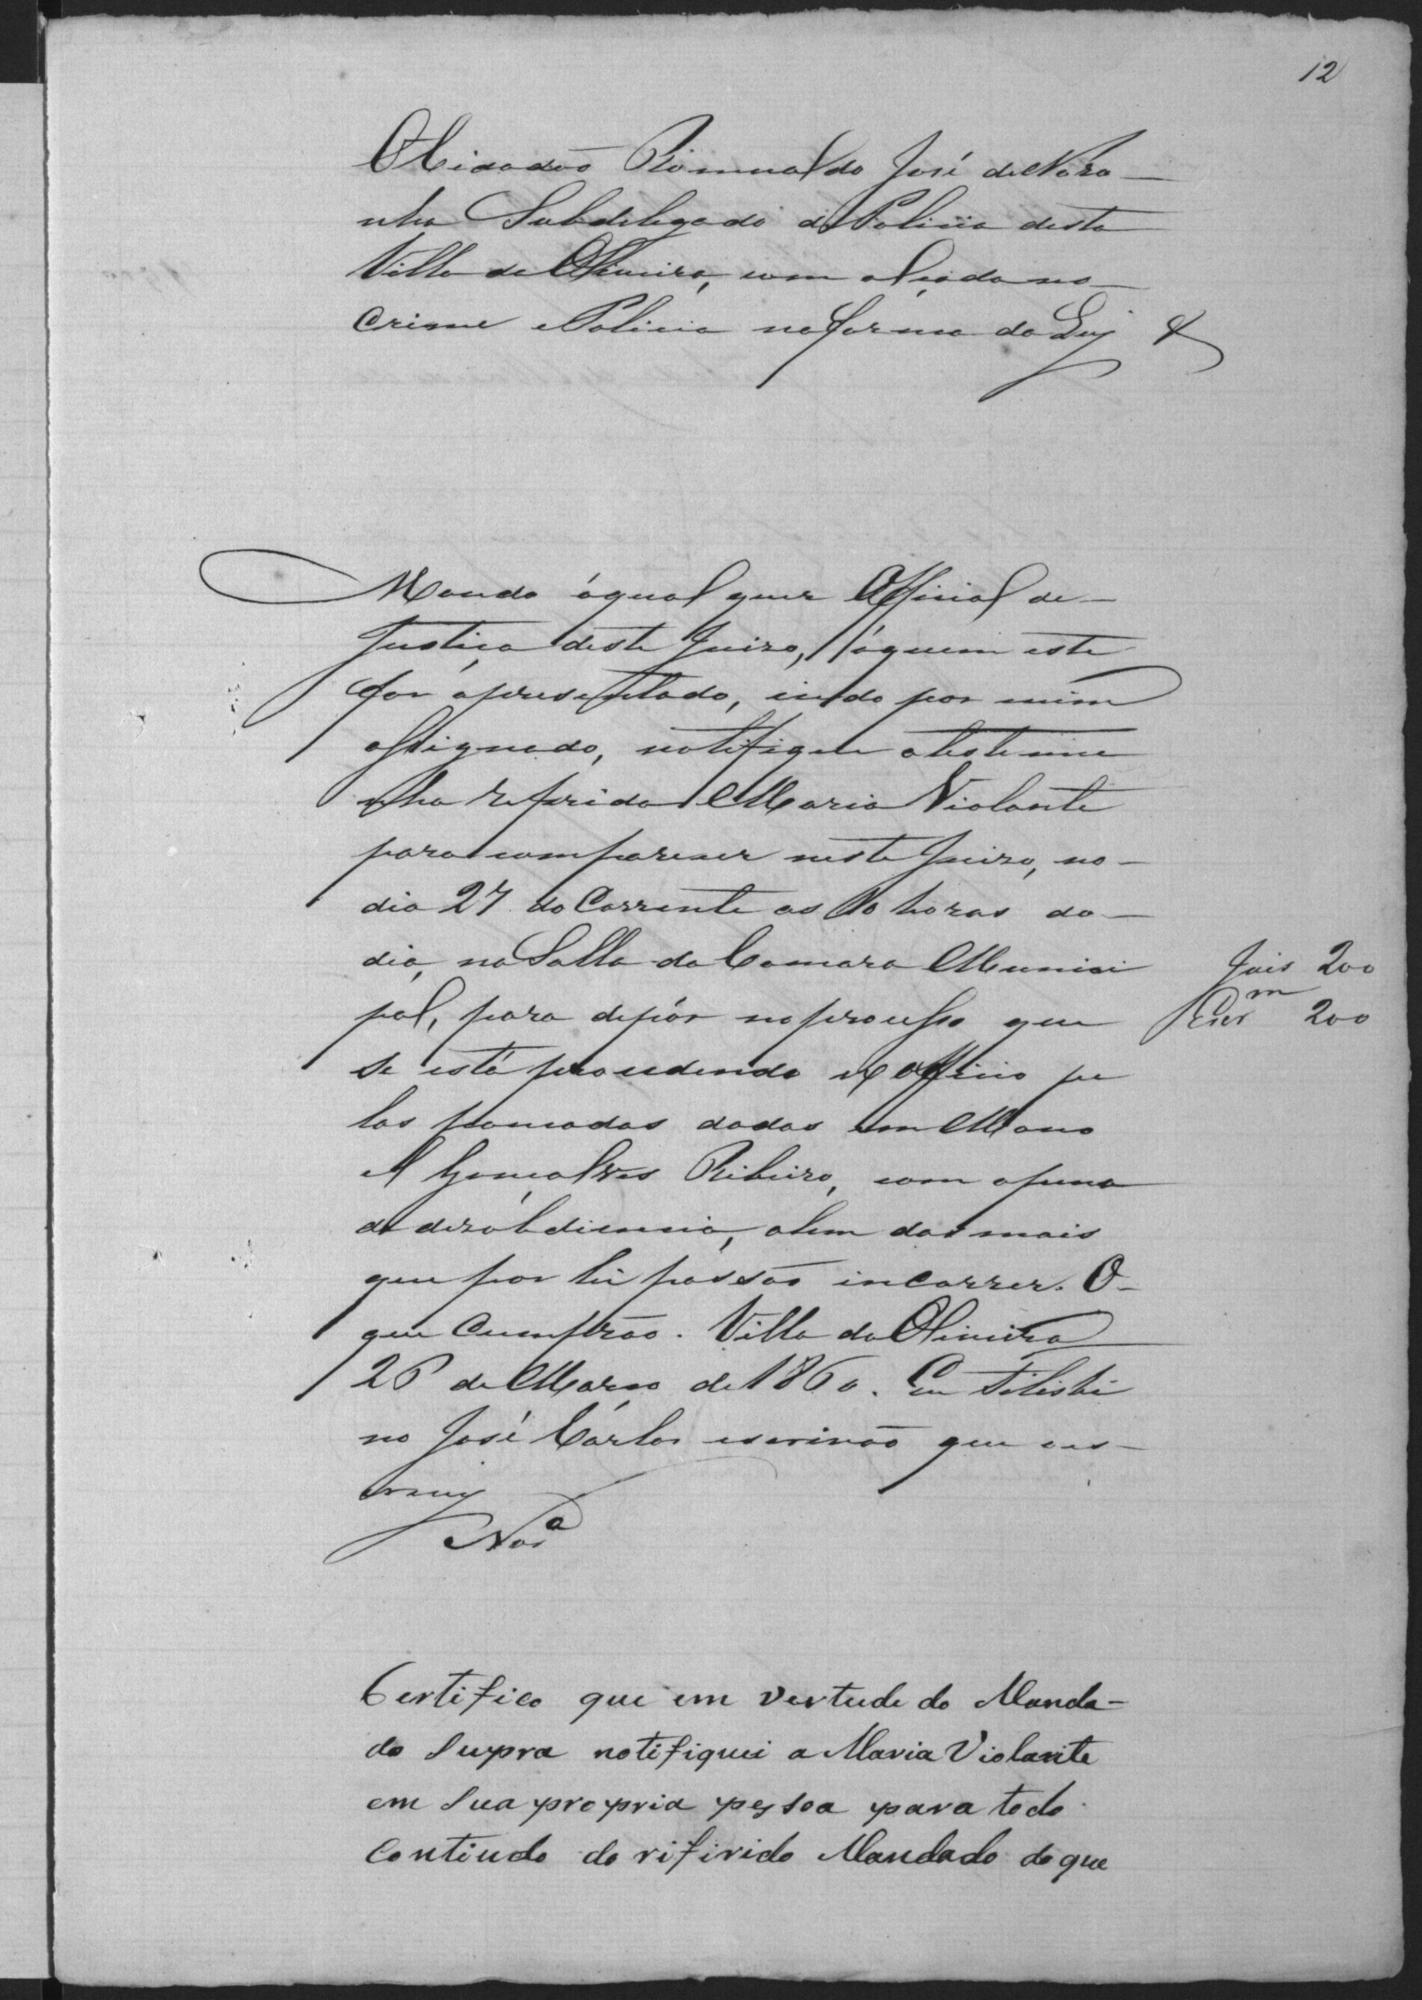 12
OCidadão Romualdo José de Noro-
nha Subdelegado de Policia desta
Villa de Oliveira, com alçada no
Crime e Policia na forma da Ley &
Mando á qual quer Official de
Justiça deste Juizo, á quem este
for apresentado, indo por mim
assignado, notifique atestemu
nha referida Maria Violante
para comparecer neste Juizo, no
dia 27 do Corrente as 10 horas do
dia, na Salla da Camara Munici
pal, para depôr no processo que
se está procedendo ex officio pe
las pancadas dadas em Mano
el Gonçalves Ribeiro, com apena
de desobdiencia, alem das mais
que por lei possão incorrer. O
que Cumprão. Villa da Oliveira
26 de Março de 1860. Eu Felisbi
no José Carlos escrivão que oes
crevy
Nor.ª
Juis 200
Escr.m 200
Certifico que em vertude do Manda-
do Supra notifiquei a Maria Violante
em sua propria pessoa para todo
Contiudo do rifirido Mandado do que